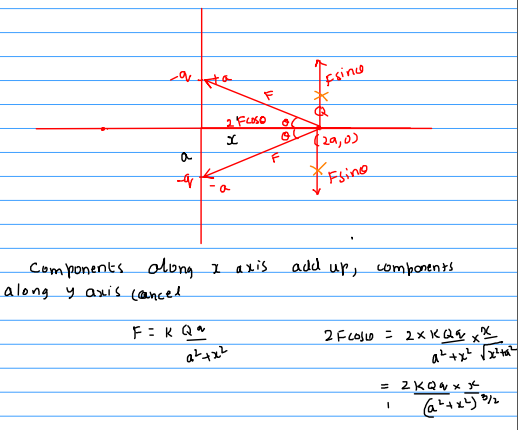 -q +a
F
F sinθ
Q
2Fcosθ θ
x θ
(2a,0)
a
F
F sinθ
-q -a
Components along x axis add up, components
along y axis cancel
F = K Qq / a²+x²
2Fcosθ = 2 × K Qq / a²+x² × x / √x²+a²
= 2KQq × x / (a²+x²)^3/2